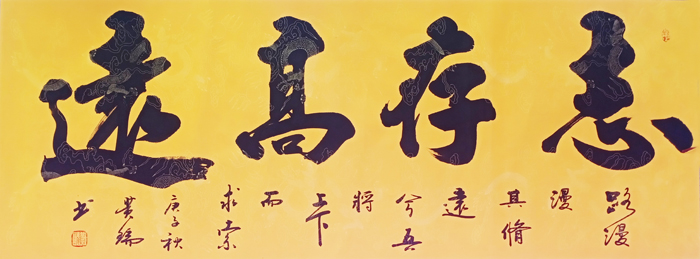 志存高遠
路漫漫其脩遠兮吾將上下而求索
庚子秋黄瑞书